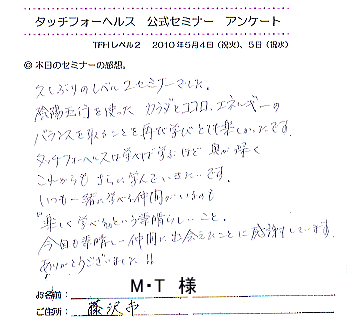 タッチフォーヘルス 公式セミナー アンケート
TFHレベル2 2010年5月4日(祝火)、5日(祝水)
◎本日のセミナーの感想。
久しぶりのレベル2セミナーでした。
陰陽五行を使った カラダとココロ、エネルギーの
バランスを取ることを再び学びとても楽しかったです。
タッチフォーヘルスは学べば学ぶほど 奥が深く
これからも さらに学んでいきたいです。
いつも一緒に学べる仲間がいるのも
"楽しく学べる"という素晴らしいこと。
今回も素晴しい仲間に出会えたことに感謝しています。
ありがとうございました!!
お名前: M・T 様
ご住所: 藤沢市